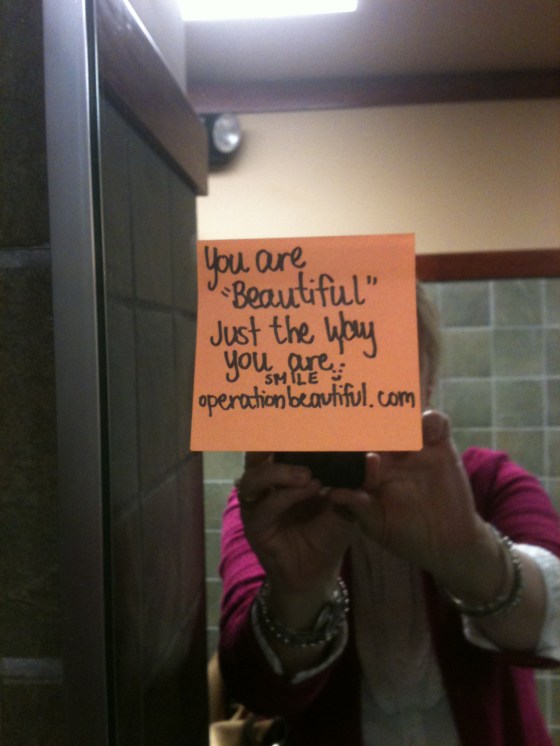 You are
"Beautiful"
Just the Way
you are.
SMILE
operationbeautiful.com